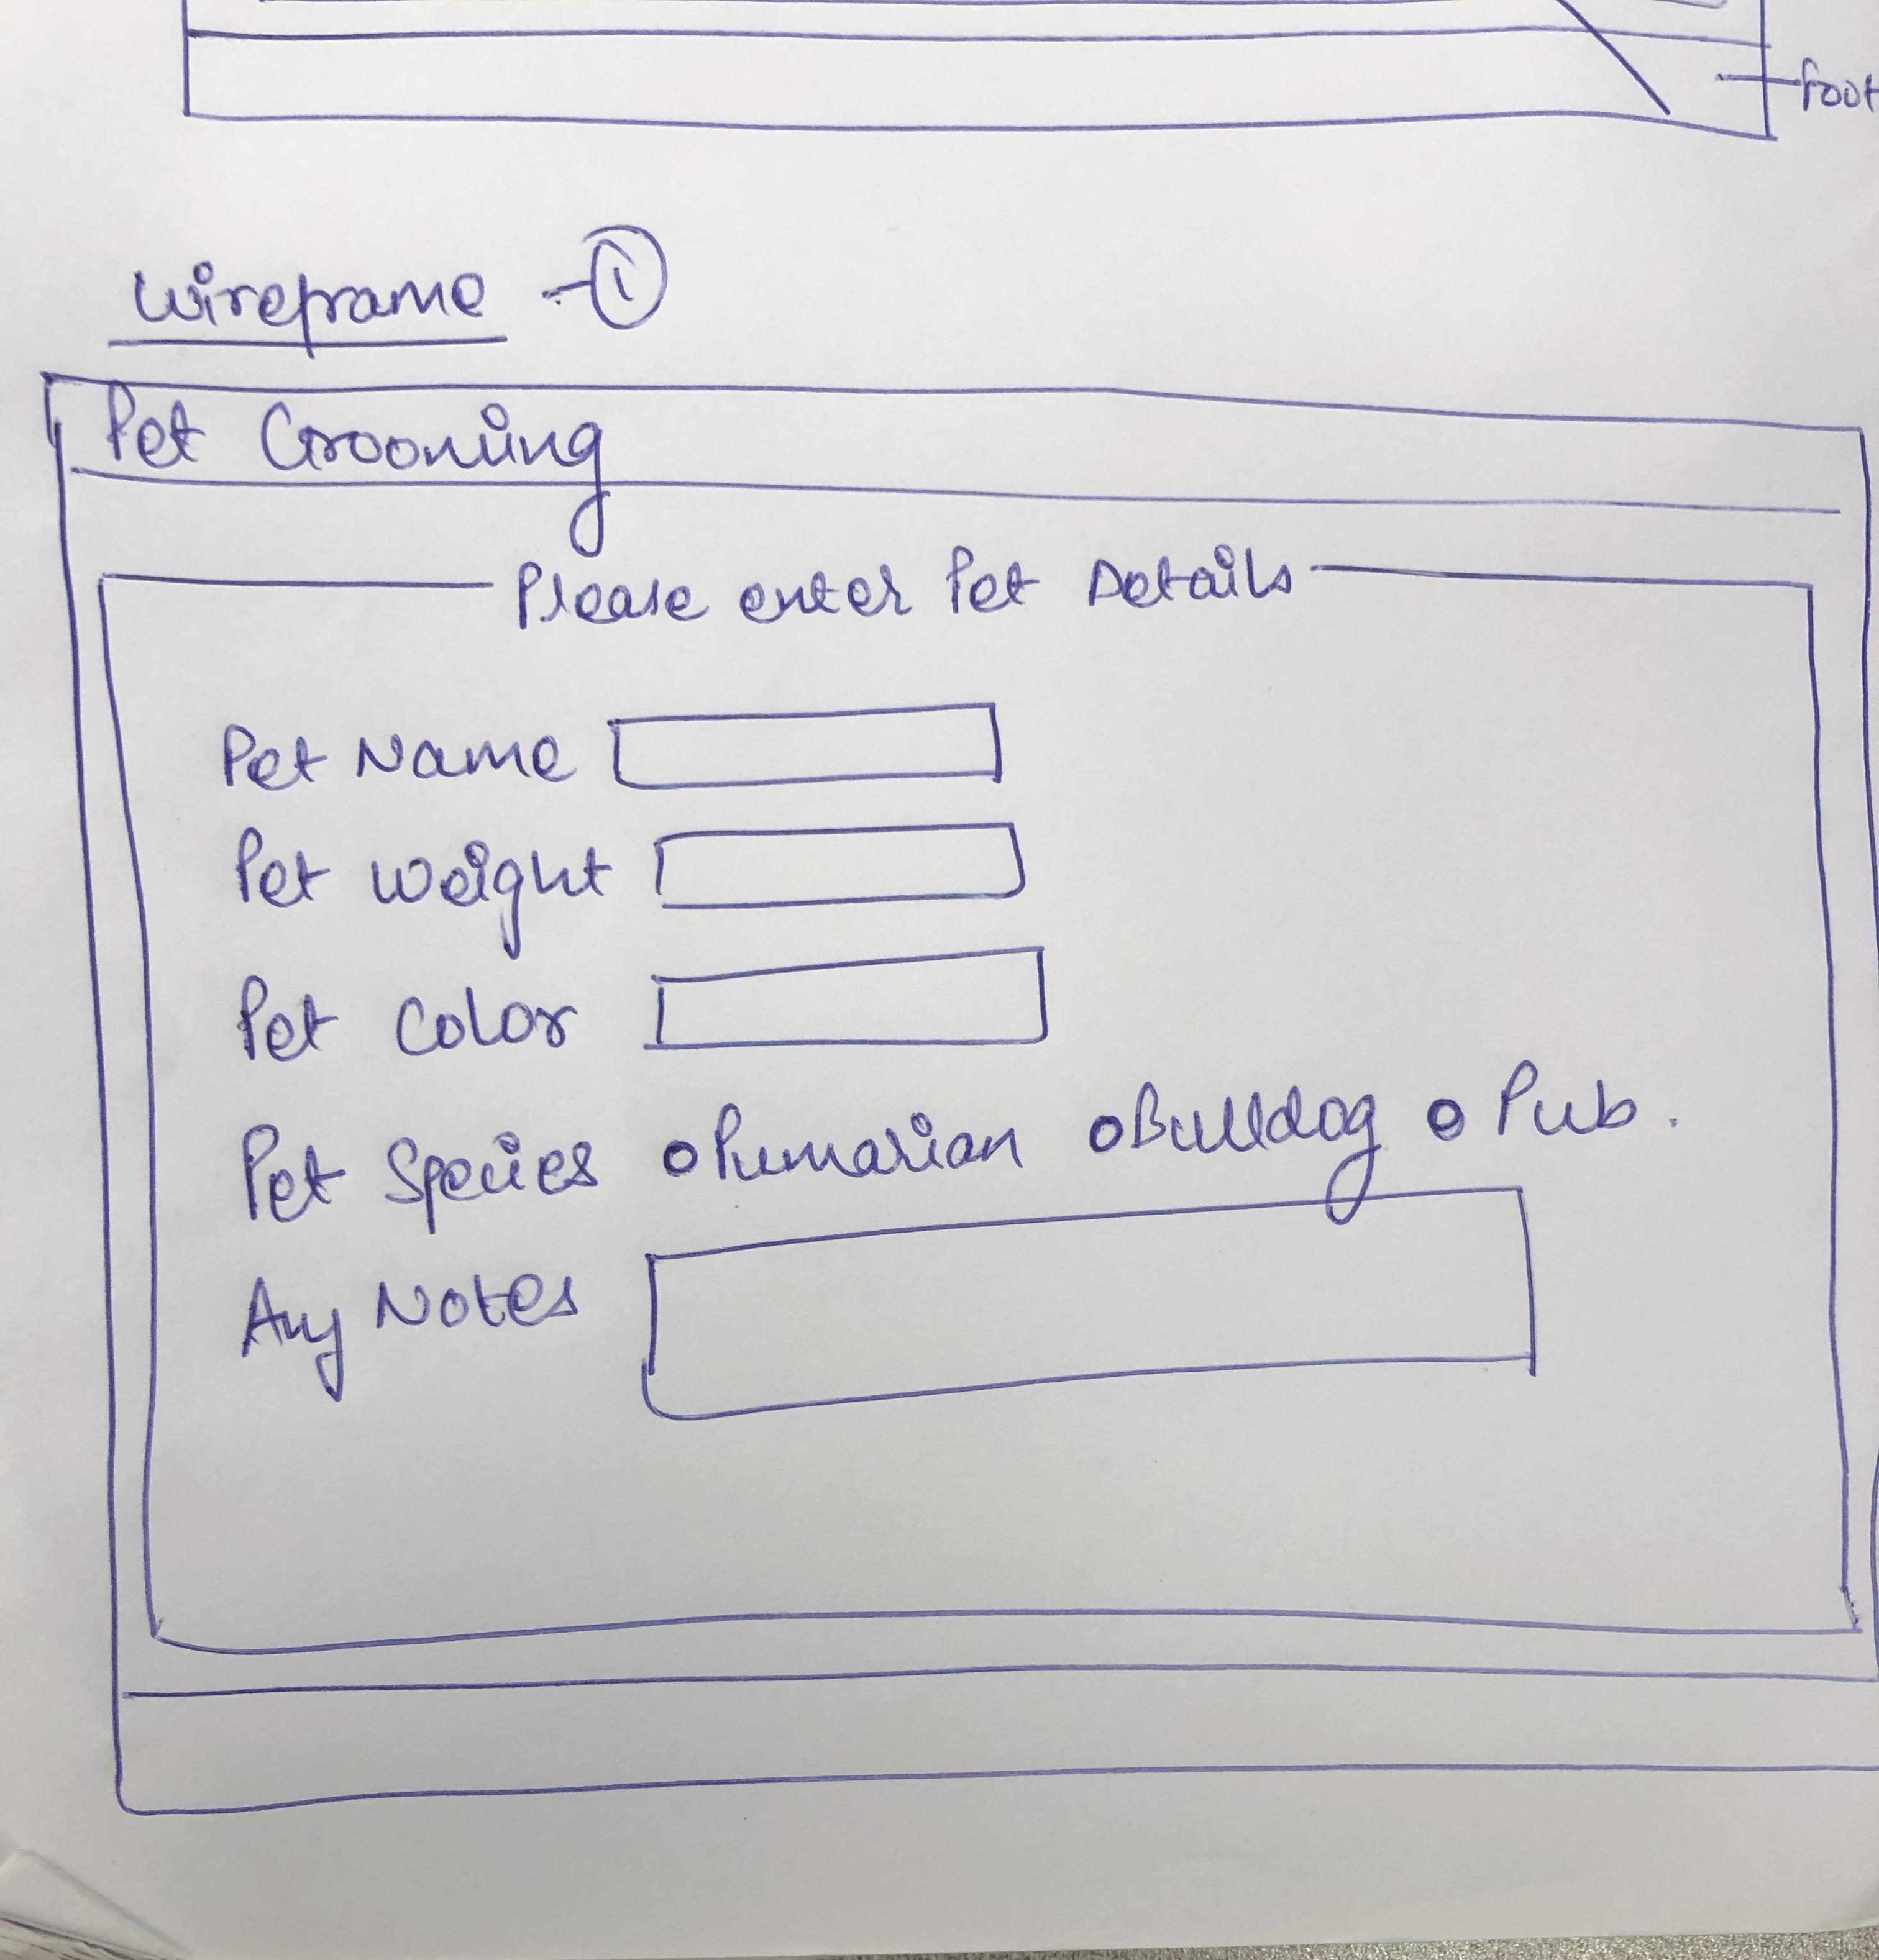 Foot
Wireframe - 1
Pet Grooming
Please enter Pet Details
Pet Name
Pet Weight
Pet Color
Pet Species Pumarian Bulldog Pub.
Any Notes